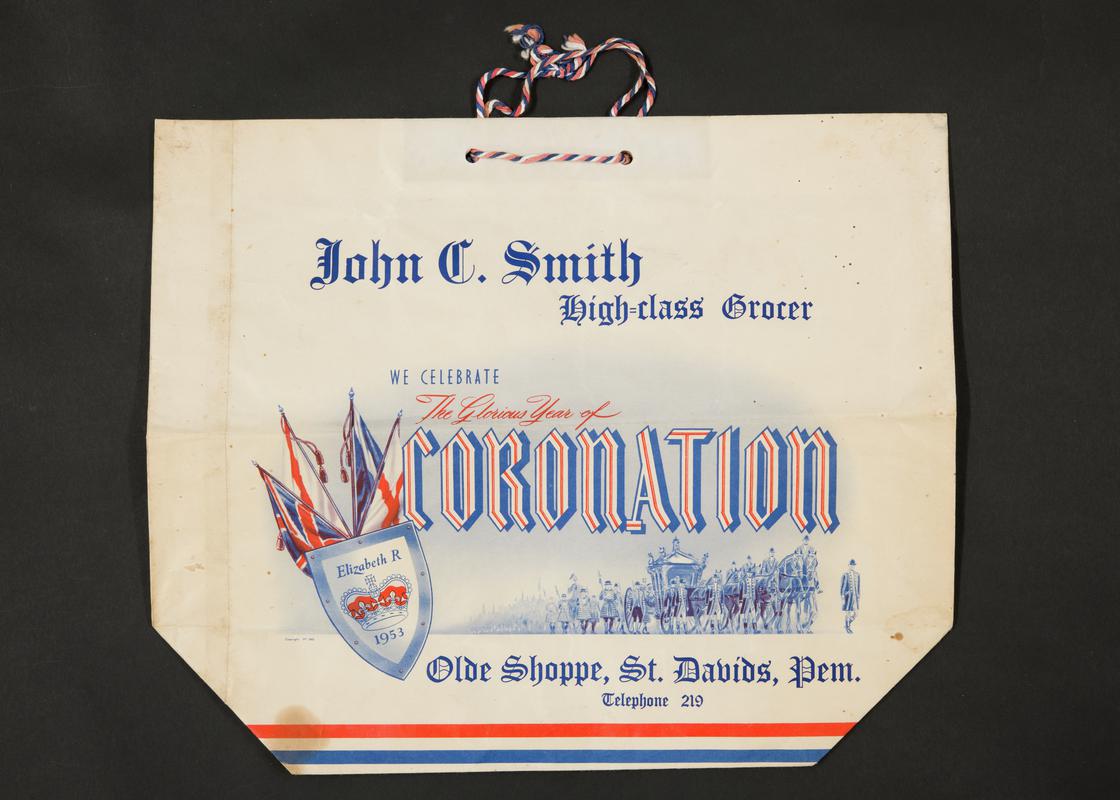 John C. Smith
High=class Grocer
WE CELEBRATE
The Glorious Year of
CORONATION
Elizabeth R
1953
Olde Shoppe, St. Davids, Pem.
Telephone 219